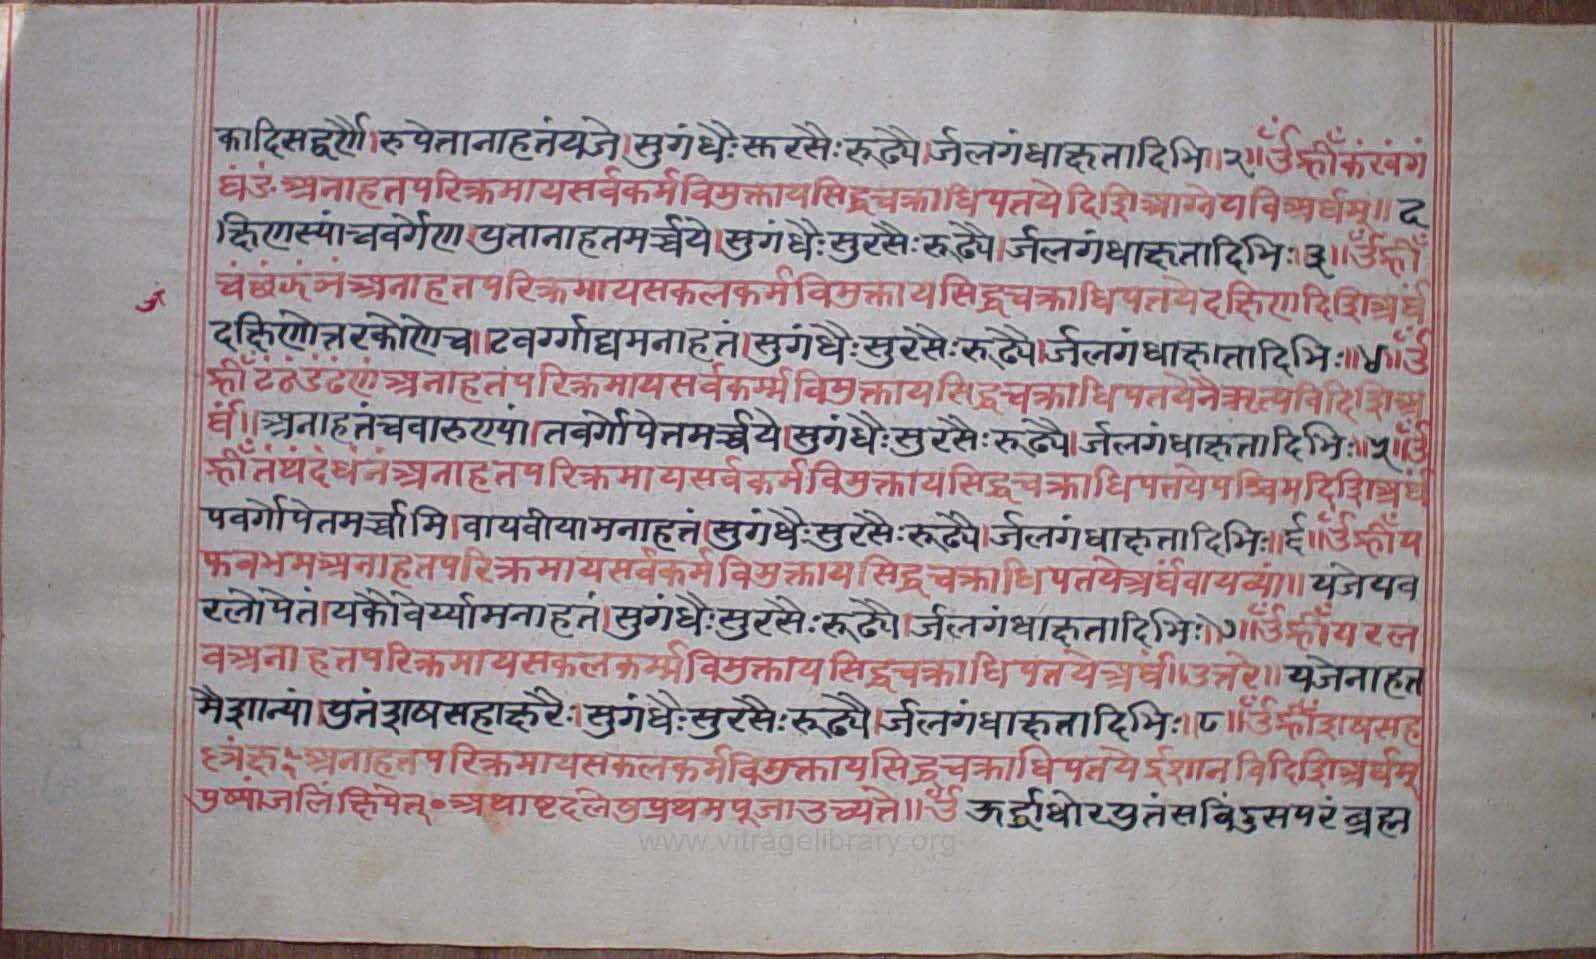 कादिसद्वर्णै।रुपेतानाहतंयजे।सुगंधैःस्फरसैःरूढ्यै।र्जलगंधाक्षतादिभि॥२॥ॐह्रीँकंखंगं
घंङंअनाहतपरिक्रमायसर्वकर्मविमुक्तायसिद्धचक्राधिपतयेदिशिआग्नेयविअर्घम्॥द
क्षिणस्यांचवर्गेण।युतानाहतमर्च्चये।सुगंधैःसुरसैःरूढ्यै।र्जलगंधाक्षतादिभिः।३॥ॐह्रीँ
चंछंजंझंञंअनाहतपरिक्रमायसकलकर्मविमुक्तायसिद्धचक्राधिपतयेदक्षिणदिशिअर्घं
दक्षिणोत्तरकोणेच॥टवर्ग्गाद्यमनाहतं।सुगंधैःसुरसैःरूढ्यै।र्जलगंधाक्षातादिभिः॥४॥ॐ
ह्रीँटंठंडंढंणंअनाहतंपरिक्रमायसर्वकर्म्मविमुक्तायसिद्धचक्राधिपतयेनैऋत्यविदिशिअ
र्घं॥अनाहतंचवारुण्यां।तवर्गोपेतमर्च्चये।सुगंधैःसुरसैःरूढ्यै।र्जलगंधाक्षतादिभिः॥५॥ॐ
ह्रीँतंथंदंधंनंअनाहतपरिक्रमायसर्वकर्मविमुक्तायसिद्धचक्राधिपतयेपश्चिमदिशिअर्घं
पवर्गोपेतमर्च्चामि।वायवीयामनाहतं।सुगंधैःसुरसैःरूढ्यै।र्जलगंधाक्षतादिभिः॥६॥ॐह्रीँप
फबभमअनाहतपरिक्रमायसर्वकर्मविमुक्तायसिद्धचक्राधिपतयेअर्घंवायव्यां॥यजेयव
रलोपेतं।यकौवेर्य्यामनाहतं।सुगंधैःसुरसैःरूढ्यै।र्जलगंधाक्षतादिभिः॥७॥ॐह्रीँयरल
वअनाहतपरिक्रमायसकलकर्म्मविमुक्तायसिद्धचक्राधिपतयेअर्घं॥उत्तरे॥यजेनाहत
मैशान्यां।युतंशषसहाक्षरैः।सुगंधैःसुरसैःरूढ्यै।र्जलगंधाक्षतादिभिः॥८॥ॐह्रींशषसह
अनाहतपरिक्रमायसकलकर्मविमुक्तायसिद्धचक्राधिपतयेईशानविदिशिअर्घम्
पुष्पांजलिंक्षिपेत्॰अथाष्टदलेषुप्रथमपूजाउच्यते॥ॐऊर्द्धाधोरयुतंसविंदुसपरंब्रह्म
www.vitragelibrary.org